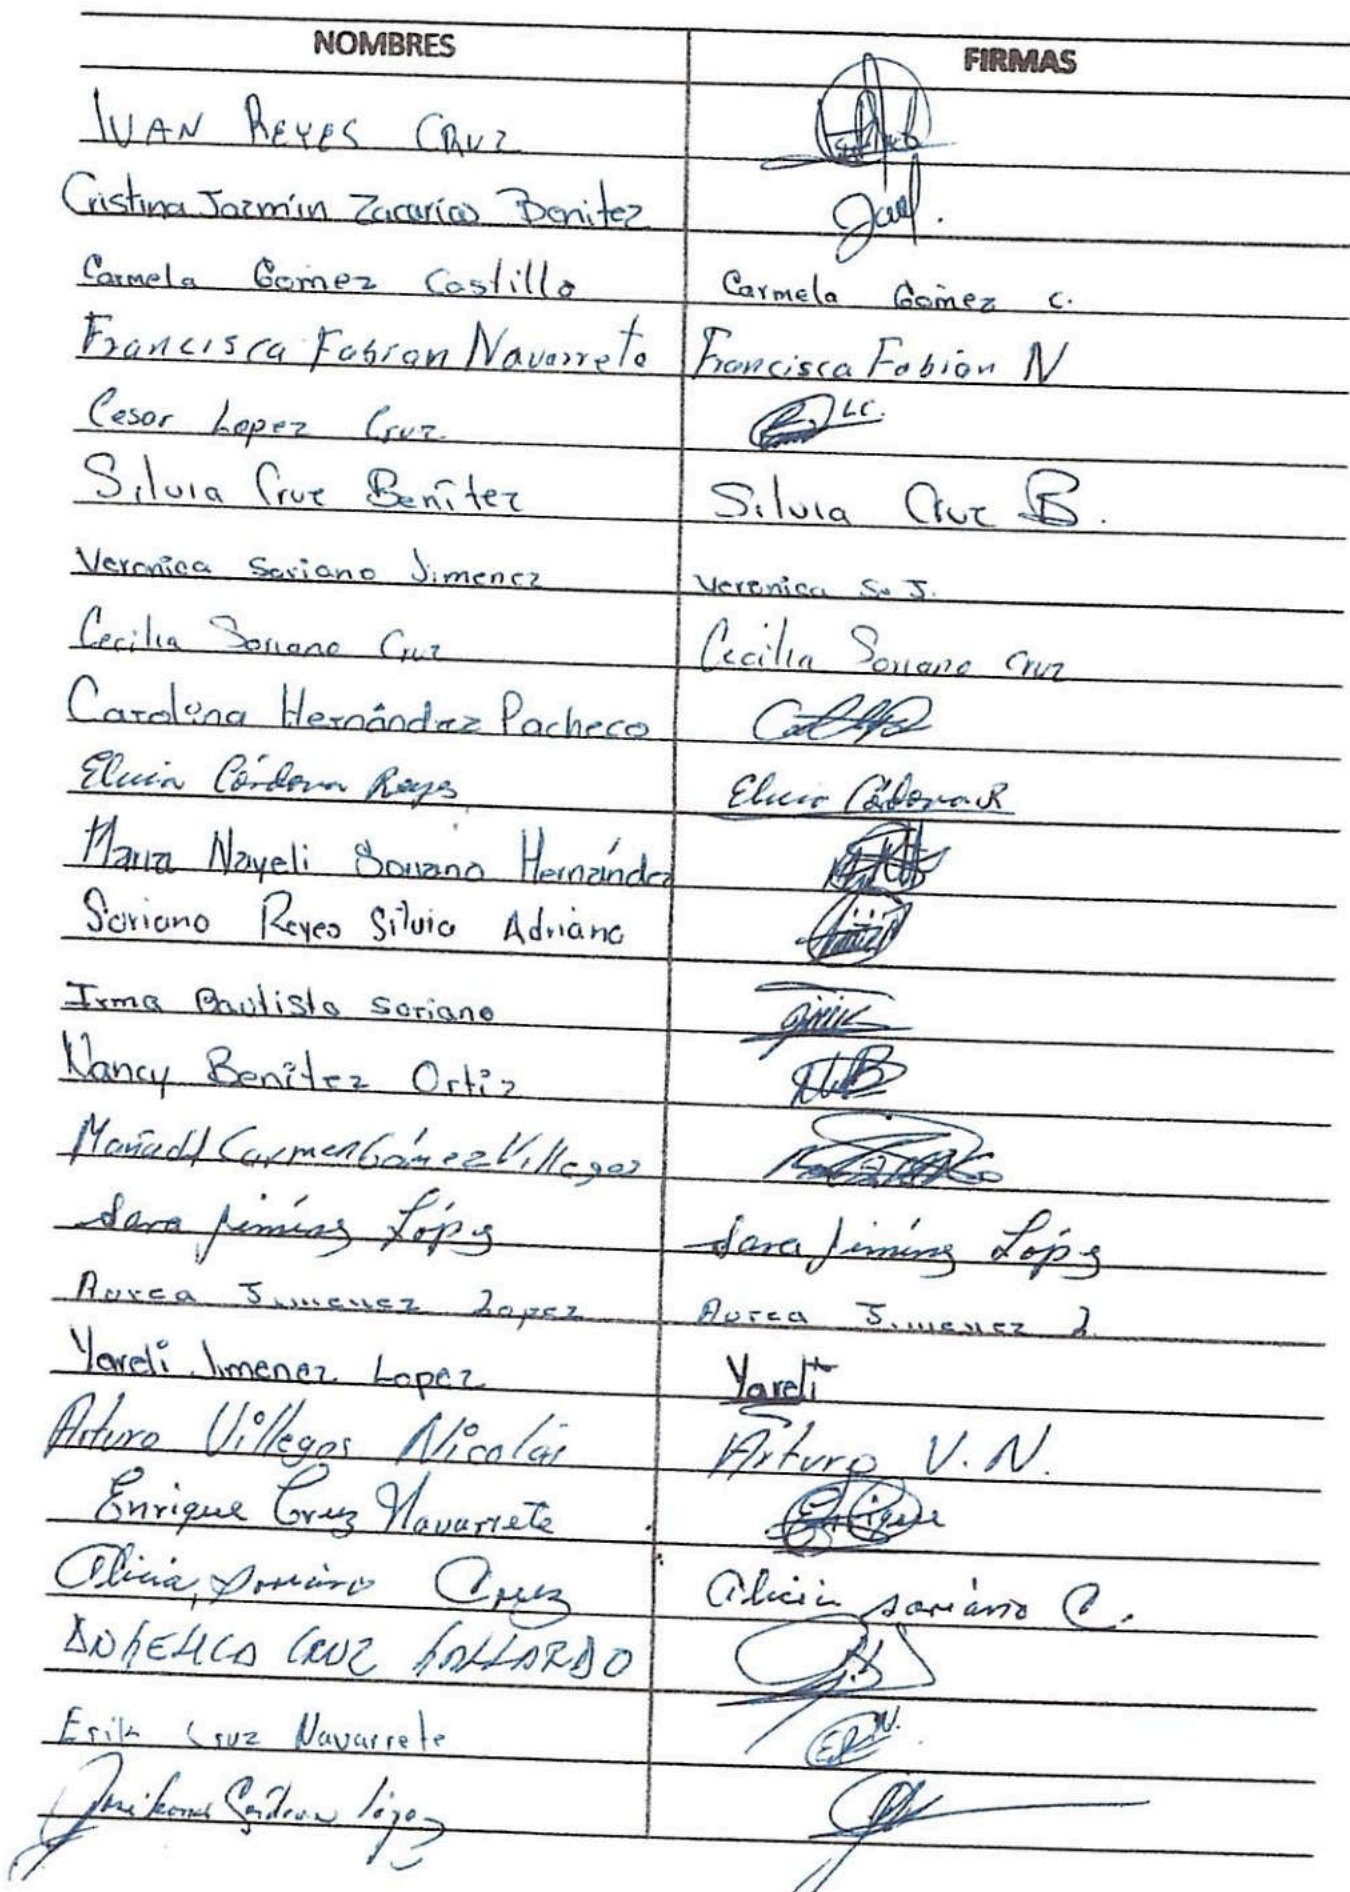 NOMBRES FIRMAS
IVAN REYES CRUZ
Cristina Jazmín Zacarías Benitez
Carmela Gomez Castillo Carmela Gomez C.
Francisca Fabian Navarrete Francisca Fabian N
Cesar Lopez Cruz LC.
Silvia Cruz Benítez Silvia Cruz B.
Veronica Soriano Jimenez Veronica S. J.
Cecilia Soriano Cruz Cecilia Soriano Cruz
Carolina Hernández Pacheco
Elvia Córdova Reyes Elvia Córdova R
Maria Nayeli Soriano Hernández
Soriano Reyes Silvia Adriana
Irma Bautista Soriano
Nancy Benitez Ortiz
María del Carmen Gómez Villegas
Sara Jiménez López Sara Jiménez López
Aurea Jimenez Lopez Aurea Jimenez L.
Yareli Jimenez Lopez Yareli
Arturo Villegas Nicolás Arturo V. N.
Enrique Cruz Navarrete Enrique
Alicia Soriano Cruz Alicia Soriano C.
ANGELICA CRUZ GALLARDO
Erik Cruz Navarrete
López